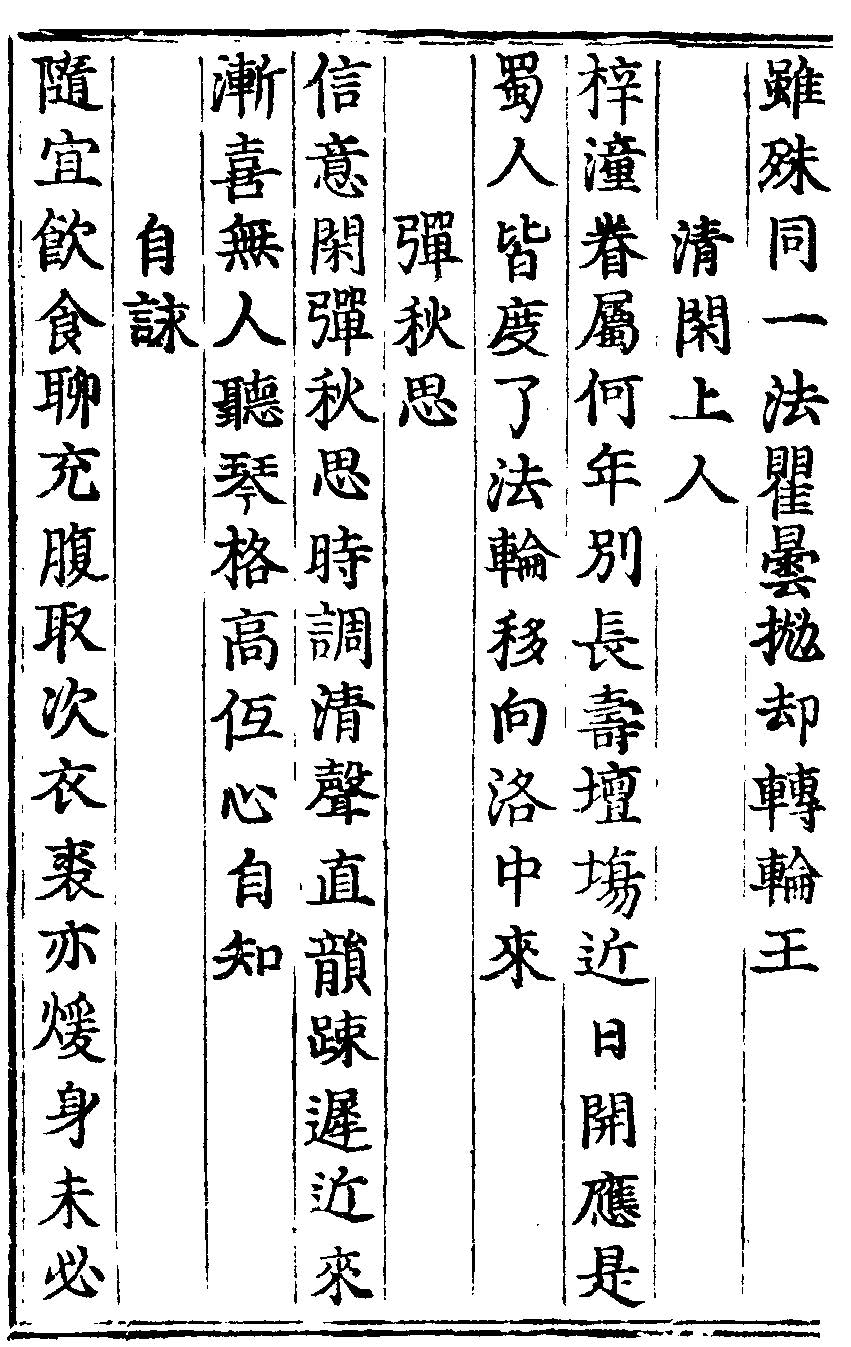 雖殊同一法瞿曇抛却轉輪王
清閑上人
梓潼眷屬何年別長壽壇塲近日開應是
蜀人皆度了法輪移向洛中來
彈秋思
信意閑彈秋思時調清聲直韻踈遲近來
漸喜無人聽琴格高伍心自知
自詠
隨宜飲食聊充腹取次衣裘亦煖身未必